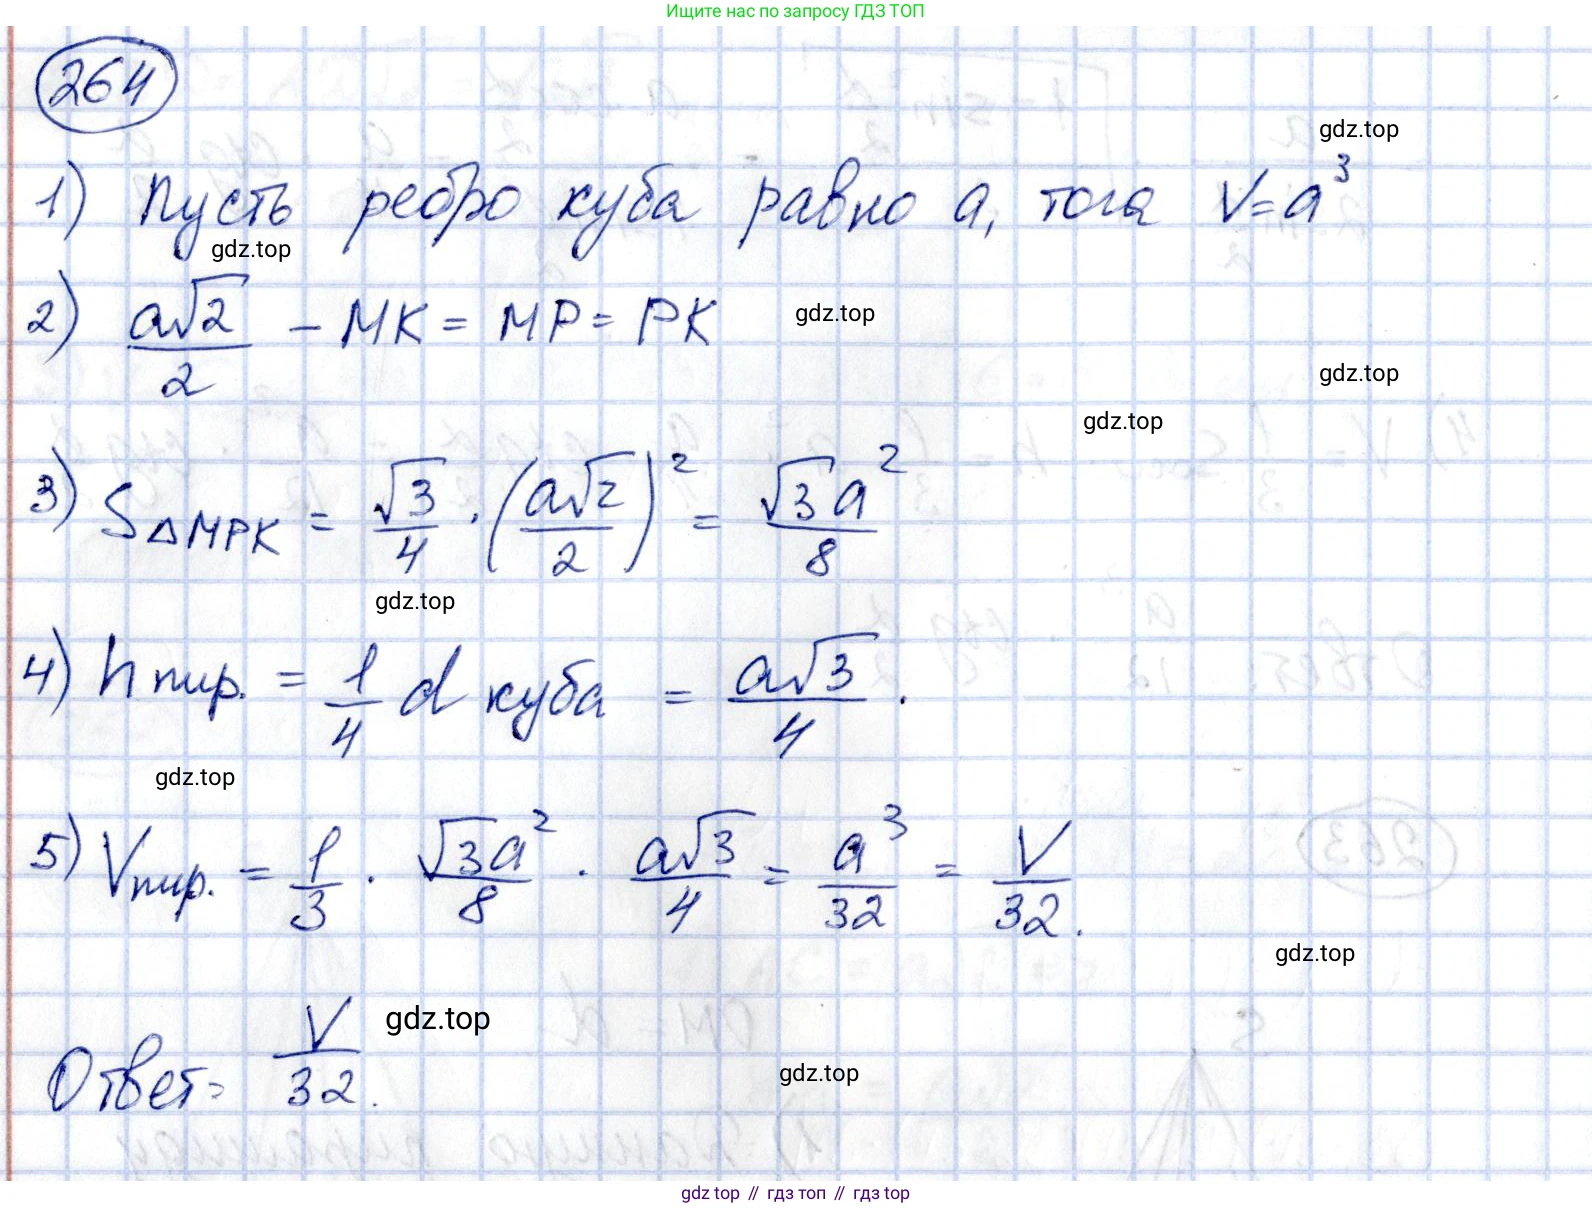 Ищите нас по запросу ГДЗ ТОП
264
gdz.top
1) Пусть ребро куба равно a, тога V=a³
gdz.top
2) a√2/2 – MK = MP = PK
gdz.top
gdz.top
gdz.top
3) S△MPK = √3/4 · (a√2/2)² = √3a²/8
gdz.top
4) h пир. = 1/4 d куба = a√3/4.
gdz.top
5) Vпир. = 1/3 · √3a²/8 · a√3/4 = a³/32 = V/32.
gdz.top
Ответ: V/32.
gdz.top
gdz.top
gdz top // гдз топ // gdz top